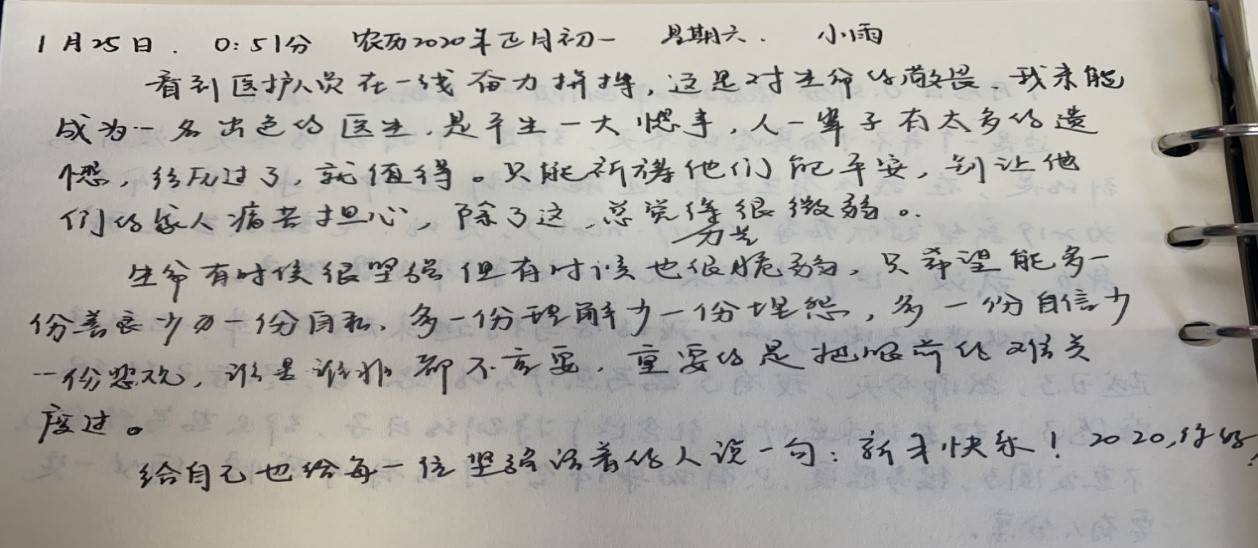 1月25日. 0:51分 农历2020年正月初一 星期六. 小雨
看到医护人员在一线奋力拼搏,这是对生命的敬畏 我未能
成为一名出色的医生.是平生一大憾事,人一辈子有太多的遗
憾,经历过了,就值得。只能祈祷他们能平安,别让他
们的家人痛苦担心,除了这 总觉得很微弱。
力量
生命有时候很坚强但有时候也很脆弱,只希望能多一
份善良少一份自私、多一份理解少一份埋怨,多一份自信少
一份悲观,谁是谁非都不重要.重要的是把眼前的难关
度过。
给自己也给每一位坚强活着的人说一句:新年快乐!2020,好好